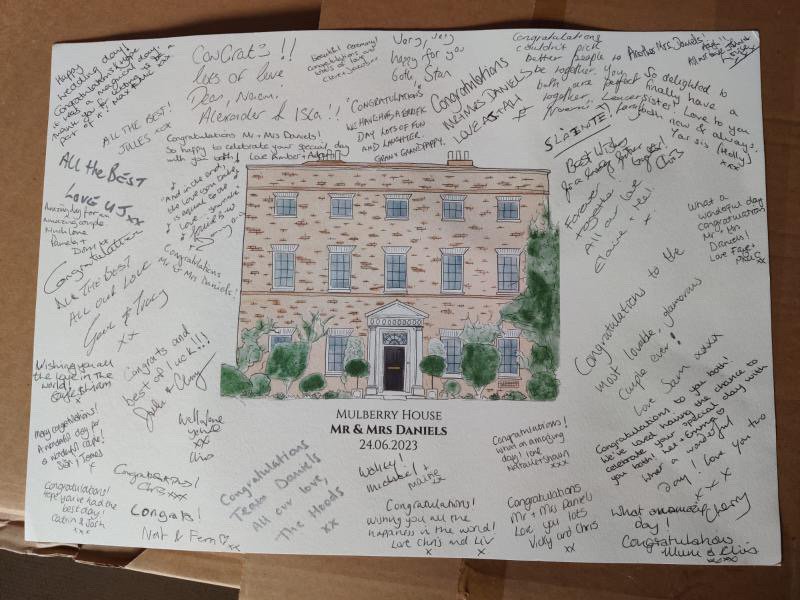 Happy
wedding day!
Congratulations & hope
it was a magical day.
Thank you for letting us be a
part of it!
ALL THE BEST!
JULES xox
ALL the BEST
Love UJ xx
Amazing day for an
amazing couple
Much love
Pamela +
Congratulations
ALL THE BEST
ALL OUR LOVE
& Tracy
xx
Wishing you all
the love in the
world!
Many congratulations!
A wonderful day for
a wonderful couple!
Siân & James
x
Congratulations!
Hope you've had the
best day!
Catrin & Josh
xxx
CONGRATS!!
lots of love
Dean, Naomi,
Alexander & Isla!!
Congratulations Mr + Mrs Daniels!
So happy to celebrate your special day
with you both! Love Amber +
"And in the end,
the love you take
is equal to the
love you make"
Congratulations
Mr & Mrs Daniels!
Congrats and
best of luck!!!
Well done
xx
Chris
Congratulations!
Chris xxx
Congrats!
Nat & Fern xx
Beautiful ceremony!
Congratulations and
lots of love
Very, very
happy for you
both, Stan
"CONGRATULATIONS"
WE HAVE HAD A
DAY LOTS OF FUN
AND LAUGHTER.
GRAN & GRANDPAPPY.
Congratulations
MR & MRS DANIELS
LOVE ASTALL
x
Congratulations
couldn't pick
better people to
be together. You
both are perfect
together
SLAINTE!
Another Mrs. Daniels!
All our love
So delighted to
finally have a
Love to you
both now & always.
Yor sis (Holly)
xxx
Best wishes
for a future
together!
Chris
Forever
together
All our love
Elaine + Neil
x
What a
wonderful day
congratulations
Mr + Mrs
Daniels!
Love Faye +
xx
Congratulations to the
most lovable, glamorous
couple ever!
Love Sam xxxx
Congratulations to you both!
We've loved having the chance to
celebrate your special day with
you both!
What a wonderful
day! Love you two
xxx
Cherry
MULBERRY HOUSE
MR & MRS DANIELS
24.06.2023
Congratulations
Team Daniels
All our love,
The Hoods
xx
Michael +
Congratulations!
Wishing you all the
happiness in the world!
Love Chris and Liv
x x
Congratulations!
What an amazing
day! love
xxx
Congratulations
Mr + Mrs Daniel
Love you lots
Vicky and Chris
xx
What an amazing
day!
Congratulations
Mum & Chris
xxxx